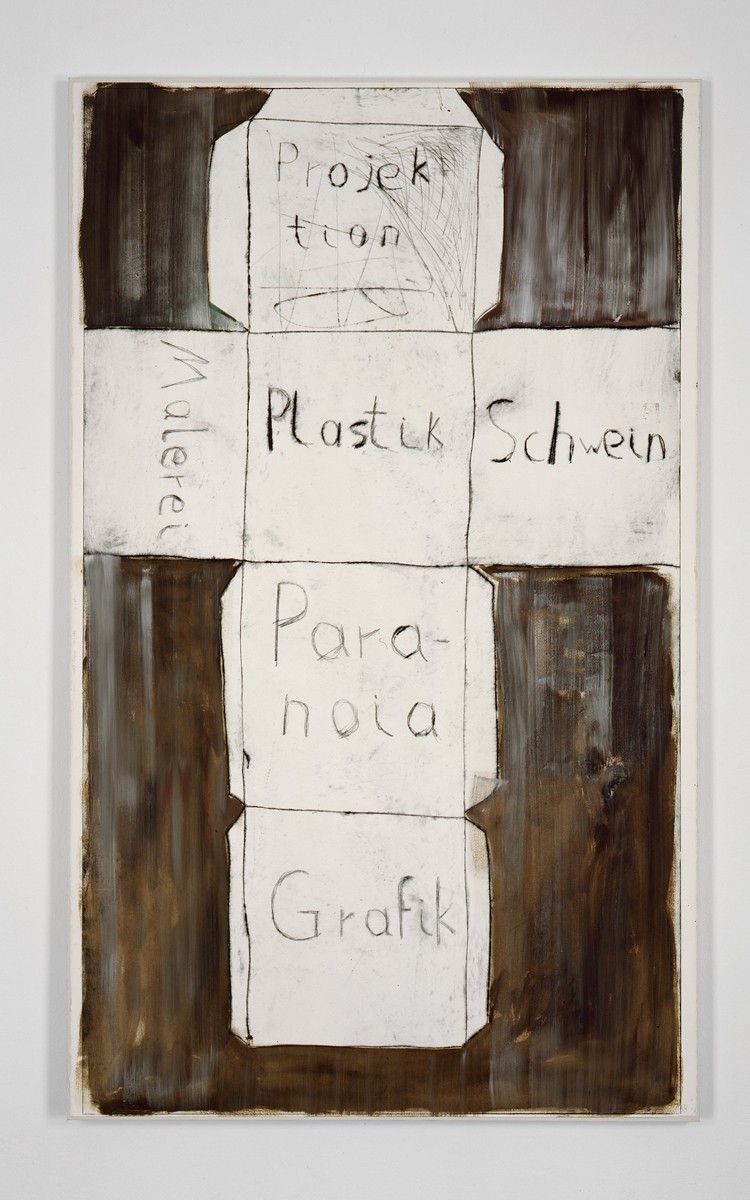 Projek
tion
Malerei
Plastik
Schwein
Para-
noia
Grafik